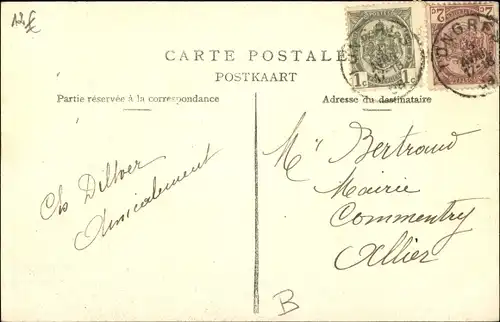 12 £
CARTE POSTALE
POSTKAART
Partie réservée à la correspondance
Adresse du destinataire
1c 1c
2 2
TONGRE
Mr Bertrand
Mairie
Commentry
Allier
Amicalement
B